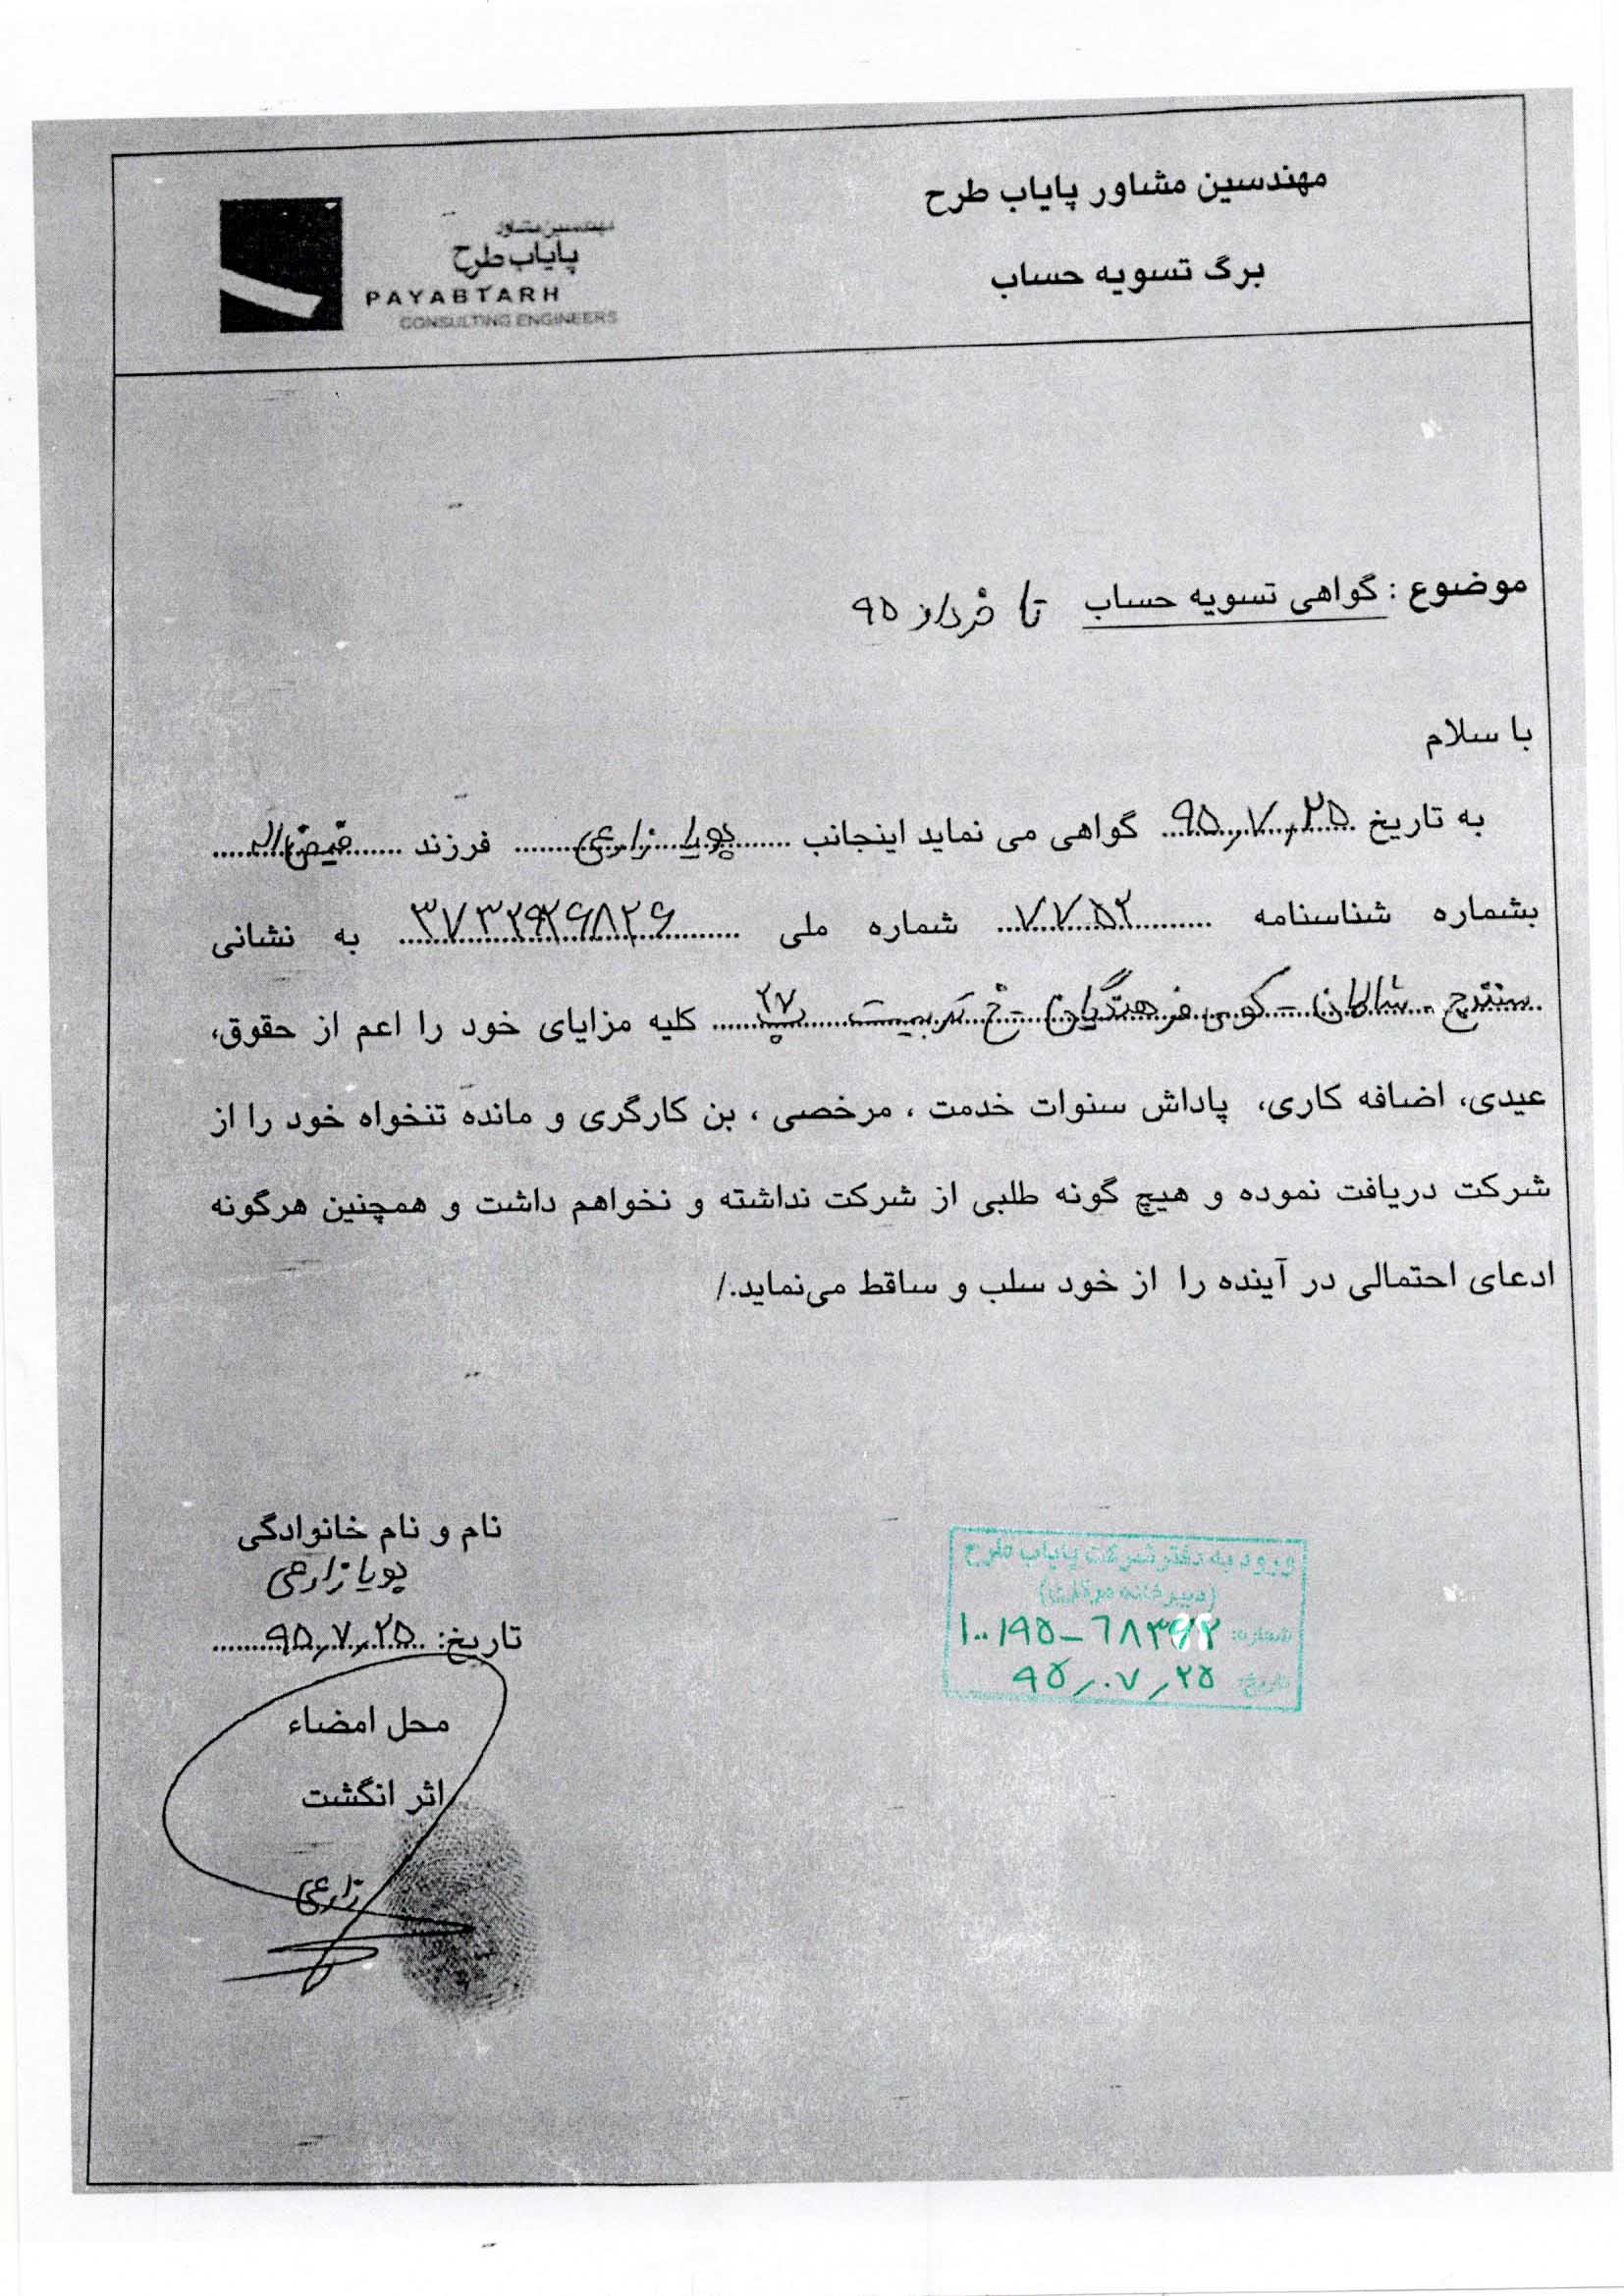 مهندسین مشاور پایاب طرح
برگ تسویه حساب
مهندسین مشاور
پایاب طرح
PAYABTARH
CONSULTING ENGINEERS
موضوع : گواهی تسویه حساب تا خرداد ۹۵
با سلام
به تاریخ ۹۵/۷/۲۵ گواهی می نماید اینجانب پویا زارعی فرزند فیض اله
بشماره شناسنامه ۷۷۵۲ شماره ملی ۳۷۳۲۹۲۶۸۲۶ به نشانی
سنندج - شالمان - کوی فرهنگیان - خ تربیت پ ۲۷ کلیه مزایای خود را اعم از حقوق،
عیدی، اضافه کاری، پاداش سنوات خدمت ، مرخصی ، بن کارگری و مانده تنخواه خود را از
شرکت دریافت نموده و هیچ گونه طلبی از شرکت نداشته و نخواهم داشت و همچنین هرگونه
ادعای احتمالی در آینده را از خود سلب و ساقط می‌نماید./
نام و نام خانوادگی
پویا زارعی
تاریخ: ۹۵/۷/۲۵
محل امضاء
اثر انگشت
زارعی
ورود به دفتر شرکت پایاب طرح
(دبیرخانه
شماره: ۱۰۰/۹۵-۶۸۳
تاریخ: ۹۵/۰۷/۲۵